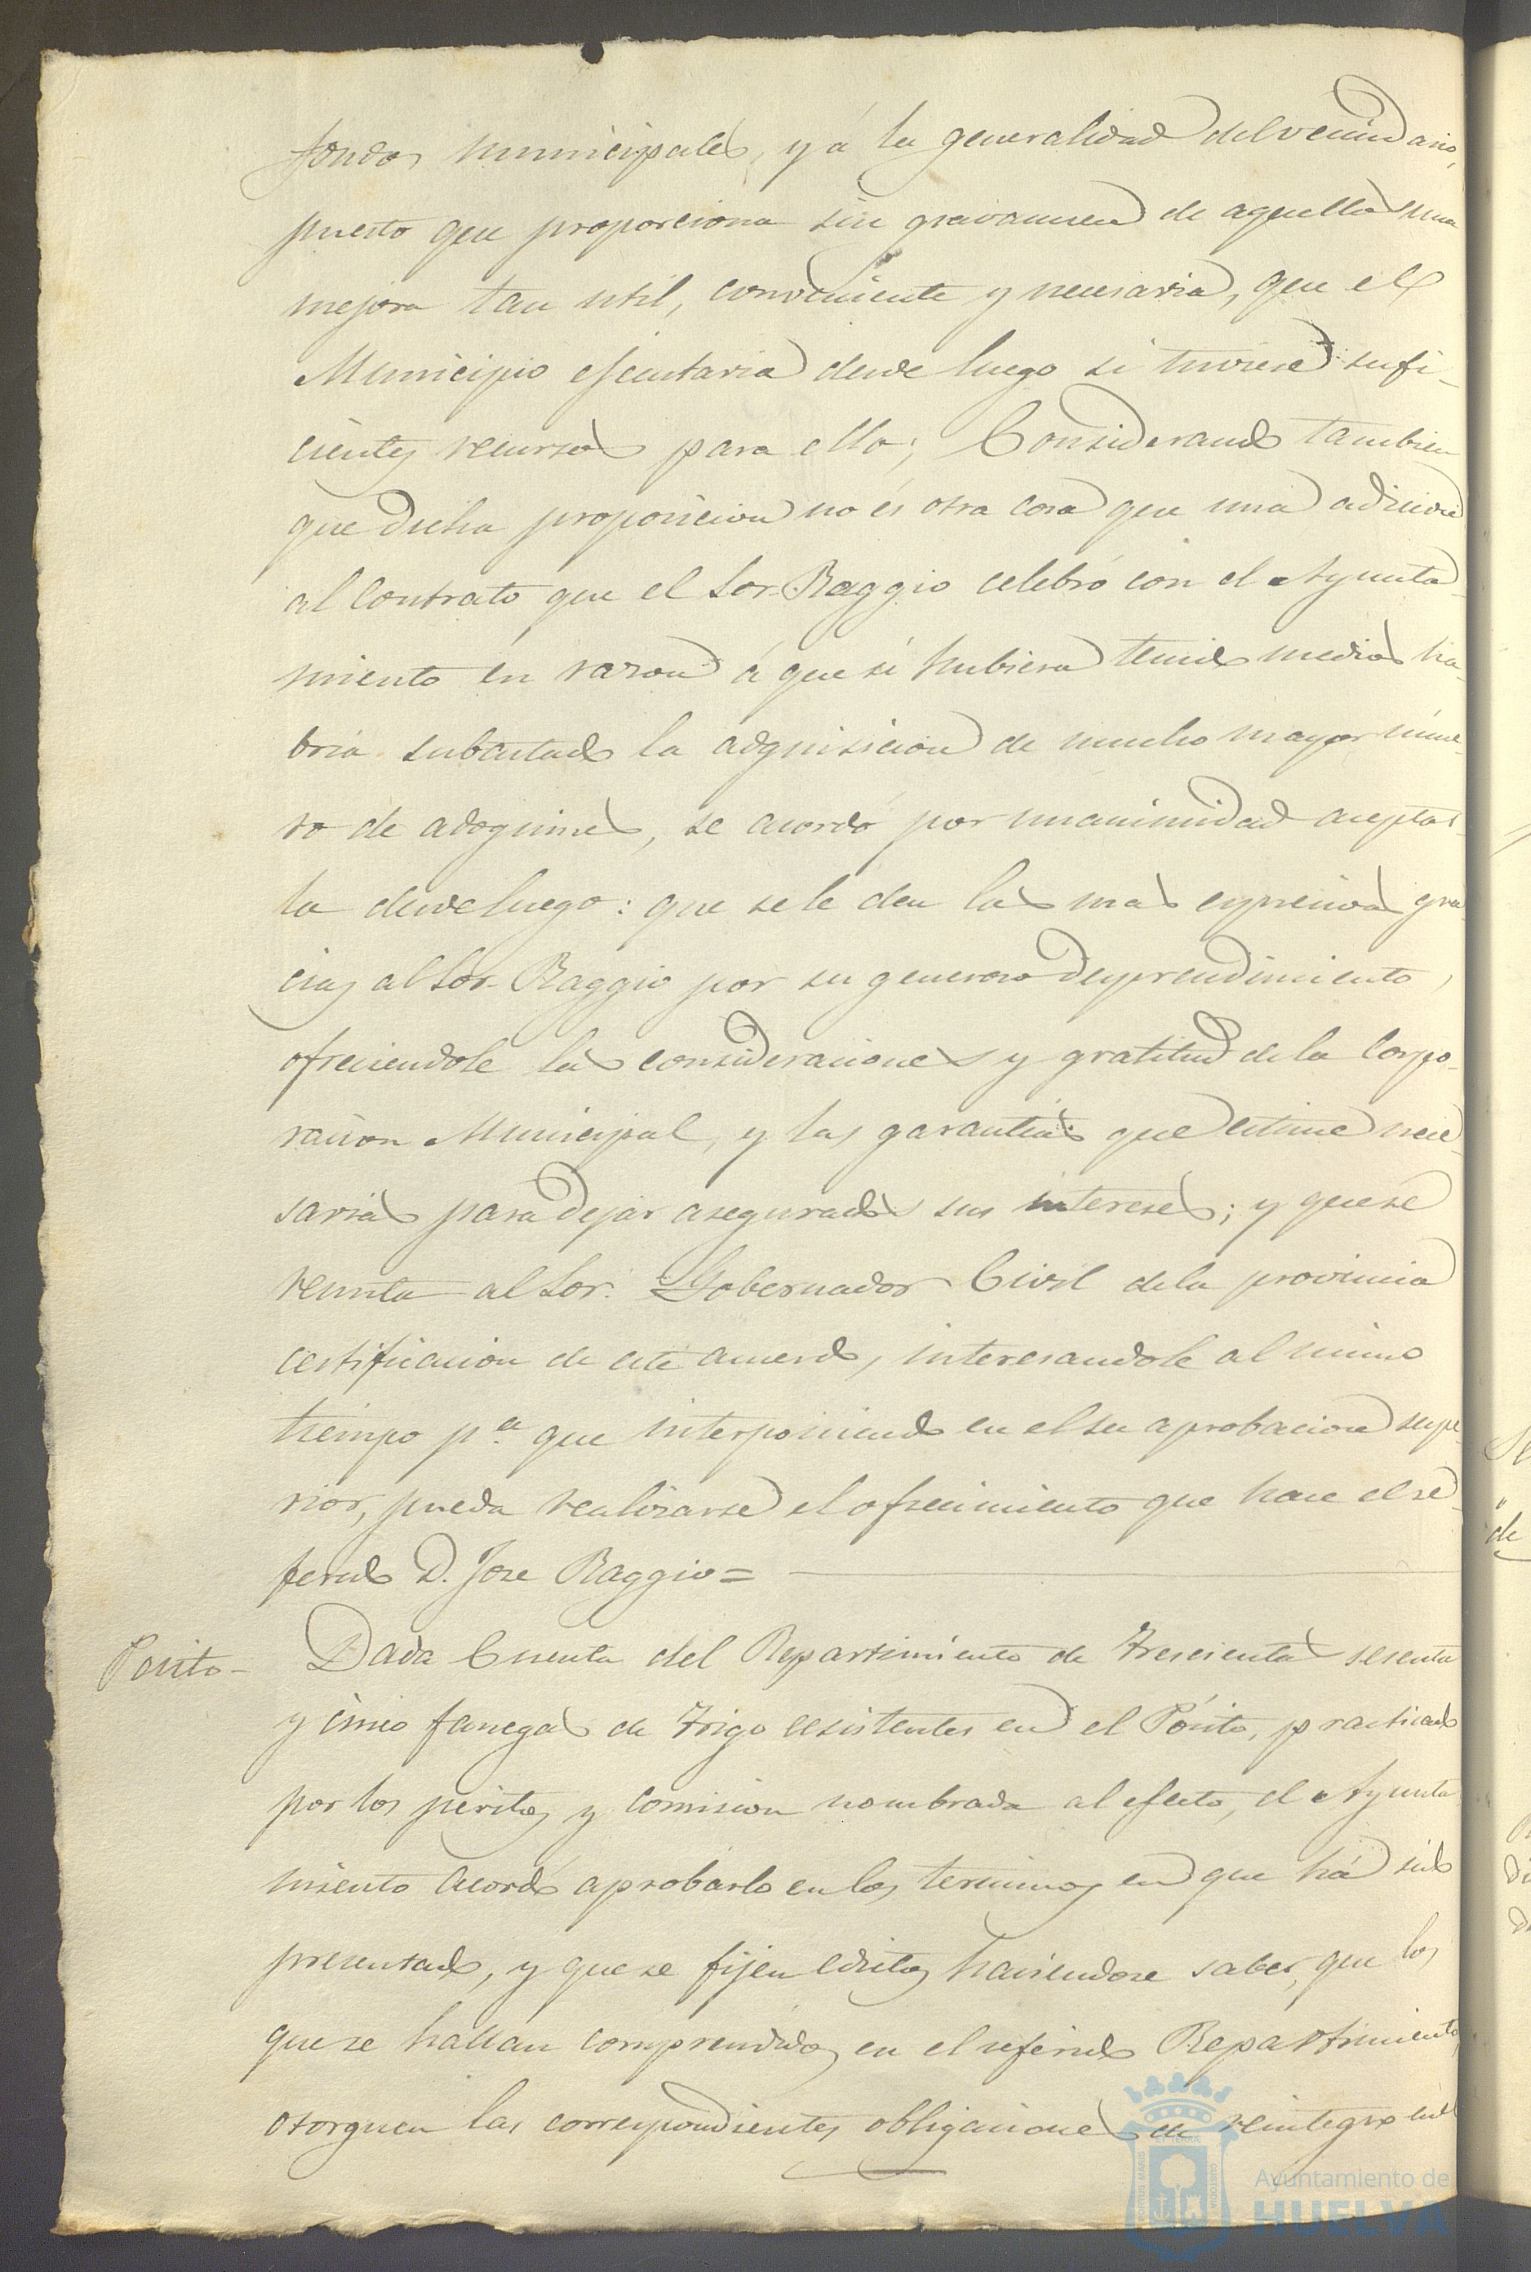 fondos municipales, y á la generalidad del vecindario,
puesto que proporciona sin gravamen de aquellos una
mejora tan util, conveniente y necesaria, que el
Municipio ejecutaria desde luego si tuviese sufi-
cientes recursos para ello; Considerando tambien
que dicha proposicion no és otra cosa que una adiccion
al Contrato que el Sor. Baggio celebró con el Ayunta
miento en razon á que si hubiera tenido medios ha-
bria subastado la adquisicion de mucho mayor núme-
ro de adoquines, se acordó por unanimidad aceptar-
la desde luego: que se le den las mas expresivas gra-
cias al Sor. Baggio por su generoso desprendimiento,
ofreciendole las consideraciones y gratitud de la Corpo-
racion Municipal, y las garantias que estime nece-
sarias para dejar asegurados sus intereses; y que se
remita al Sor. Gobernador Civil de la provincia
certificacion de este acuerdo, interesandole al mismo
tiempo pª. que interponiendo en el su aprobacion supe-
rior, pueda realizarse el ofrecimiento que hace el re-
ferido D. Jose Baggio=
Posito- Dada Cuenta del Repartimiento de Trescientas sesenta
y cinco fanegas de Trigo existentes en el Pósito, practicado
por los peritos y comision nombrada al efecto, el Ayunta
miento acordó aprobarlo en los terminos en que há sido
presentado, y que se fijen edictos haciendose saber, que los
que se hallan comprendidos en el referido Repartimiento,
otorguen las correspondientes obligaciones de reintegro
Ayuntamiento de
HUELVA